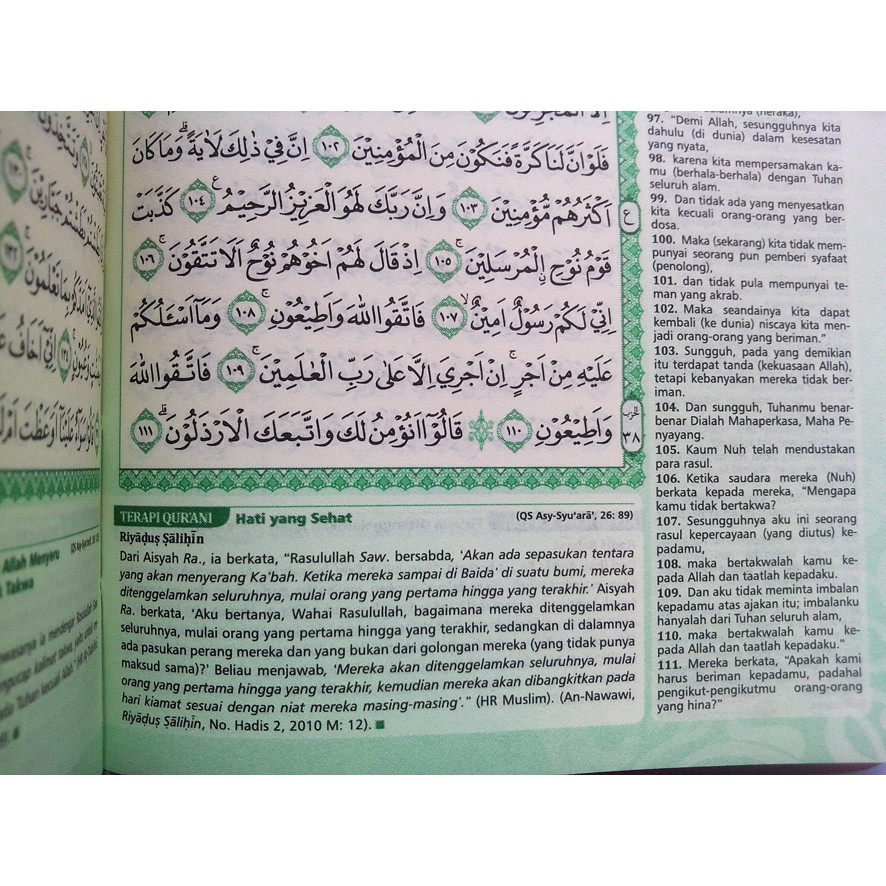 فَلَوْ اَنَّ لَنَا كَرَّةً فَنَكُوْنَ مِنَ الْمُؤْمِنِيْنَ ١٠٢ اِنَّ فِيْ ذٰلِكَ لَاٰيَةً ۗوَمَا كَانَ
اَكْثَرُهُمْ مُّؤْمِنِيْنَ ١٠٣ وَاِنَّ رَبَّكَ لَهُوَ الْعَزِيْزُ الرَّحِيْمُ ࣖ ١٠٤ كَذَّبَتْ
قَوْمُ نُوْحِ ِۨالْمُرْسَلِيْنَ ۚ ١٠٥ اِذْ قَالَ لَهُمْ اَخُوْهُمْ نُوْحٌ اَلَا تَتَّقُوْنَ ۚ ١٠٦
اِنِّيْ لَكُمْ رَسُوْلٌ اَمِيْنٌ ۙ ١٠٧ فَاتَّقُوا اللّٰهَ وَاَطِيْعُوْنِ ۚ ١٠٨ وَمَآ اَسْـَٔلُكُمْ
عَلَيْهِ مِنْ اَجْرٍ ۚاِنْ اَجْرِيَ اِلَّا عَلٰى رَبِّ الْعٰلَمِيْنَ ۚ ١٠٩ فَاتَّقُوا اللّٰهَ
وَاَطِيْعُوْنِ ١١٠ ۞ قَالُوْٓا اَنُؤْمِنُ لَكَ وَاتَّبَعَكَ الْاَرْذَلُوْنَ ۗ ١١١
ع
الحزب
٣٨
TERAPI QUR'ANI Hati yang Sehat (QS Asy-Syu'arā', 26: 89)
Riyāḍuṣ Ṣāliḥīn
Dari Aisyah Ra., ia berkata, "Rasulullah Saw. bersabda, 'Akan ada sepasukan tentara
yang akan menyerang Ka'bah. Ketika mereka sampai di Baida' di suatu bumi, mereka
ditenggelamkan seluruhnya, mulai orang yang pertama hingga yang terakhir.' Aisyah
Ra. berkata, 'Aku bertanya, Wahai Rasulullah, bagaimana mereka ditenggelamkan
seluruhnya, mulai orang yang pertama hingga yang terakhir, sedangkan di dalamnya
ada pasukan perang mereka dan yang bukan dari golongan mereka (yang tidak punya
maksud sama)?' Beliau menjawab, 'Mereka akan ditenggelamkan seluruhnya, mulai
orang yang pertama hingga yang terakhir, kemudian mereka akan dibangkitkan pada
hari kiamat sesuai dengan niat mereka masing-masing'." (HR Muslim). (An-Nawawi,
Riyāḍuṣ Ṣāliḥīn, No. Hadis 2, 2010 M: 12).
97. "Demi Allah, sesungguhnya kita
dahulu (di dunia) dalam kesesatan
yang nyata,
98. karena kita mempersamakan ka-
mu (berhala-berhala) dengan Tuhan
seluruh alam.
99. Dan tidak ada yang menyesatkan
kita kecuali orang-orang yang ber-
dosa.
100. Maka (sekarang) kita tidak mem-
punyai seorang pun pemberi syafaat
(penolong),
101. dan tidak pula mempunyai te-
man yang akrab.
102. Maka seandainya kita dapat
kembali (ke dunia) niscaya kita men-
jadi orang-orang yang beriman."
103. Sungguh, pada yang demikian
itu terdapat tanda (kekuasaan Allah),
tetapi kebanyakan mereka tidak ber-
iman.
104. Dan sungguh, Tuhanmu benar-
benar Dialah Mahaperkasa, Maha Pe-
nyayang.
105. Kaum Nuh telah mendustakan
para rasul.
106. Ketika saudara mereka (Nuh)
berkata kepada mereka, "Mengapa
kamu tidak bertakwa?
107. Sesungguhnya aku ini seorang
rasul kepercayaan (yang diutus) ke-
padamu,
108. maka bertakwalah kamu ke-
pada Allah dan taatlah kepadaku.
109. Dan aku tidak meminta imbalan
kepadamu atas ajakan itu; imbalanku
hanyalah dari Tuhan seluruh alam,
110. maka bertakwalah kamu ke-
pada Allah dan taatlah kepadaku."
111. Mereka berkata, "Apakah kami
harus beriman kepadamu, padahal
pengikut-pengikutmu orang-orang
yang hina?"
Allah Menyeru
Takwa